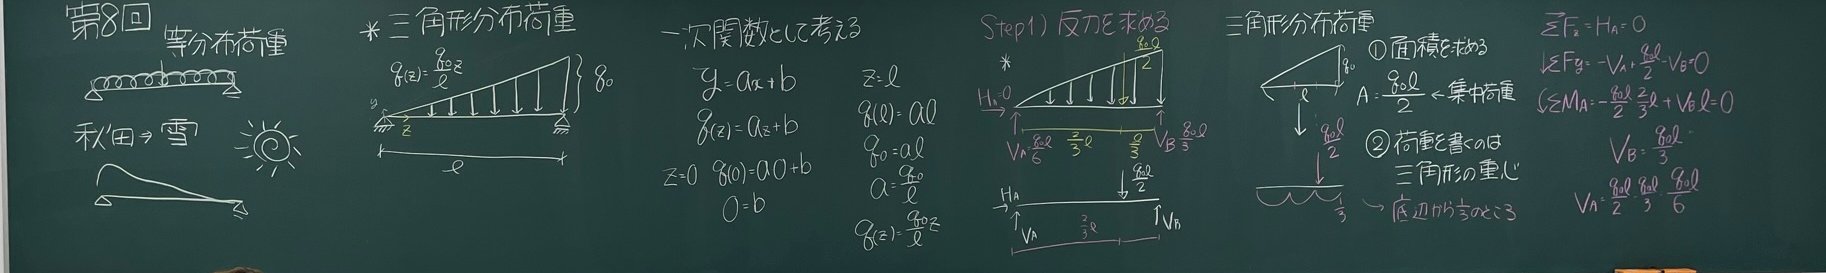 第8回
等分布荷重
秋田⇒雪
*三角形分布荷重
q(z)=q₀/l z
q₀
y
z
l
一次関数として考える
y=ax+b
q(z)=az+b
z=0 q(0)=a0+b
0=b
z=l
q(l)=al
q₀=al
a=q₀/l
q(z)=q₀/l z
Step1) 反力を求める
*
q₀l/2
H_A=0
V_A=q₀l/6
2/3 l
l/3
V_B=q₀l/3
q₀l/2
H_A
V_A
V_B
2/3 l
三角形分布荷重
q₀
l
①面積を求める
A=q₀l/2 ←集中荷重
q₀l/2
②荷重を書くのは
三角形の重心
1/3
→底辺から1/3のところ
ΣF_z=H_A=0
↓ΣF_y=-V_A+q₀l/2-V_B=0
ΣM_A=-q₀l/2 2/3 l+V_B l=0
V_B=q₀l/3
V_A=q₀l/2-q₀l/3=q₀l/6